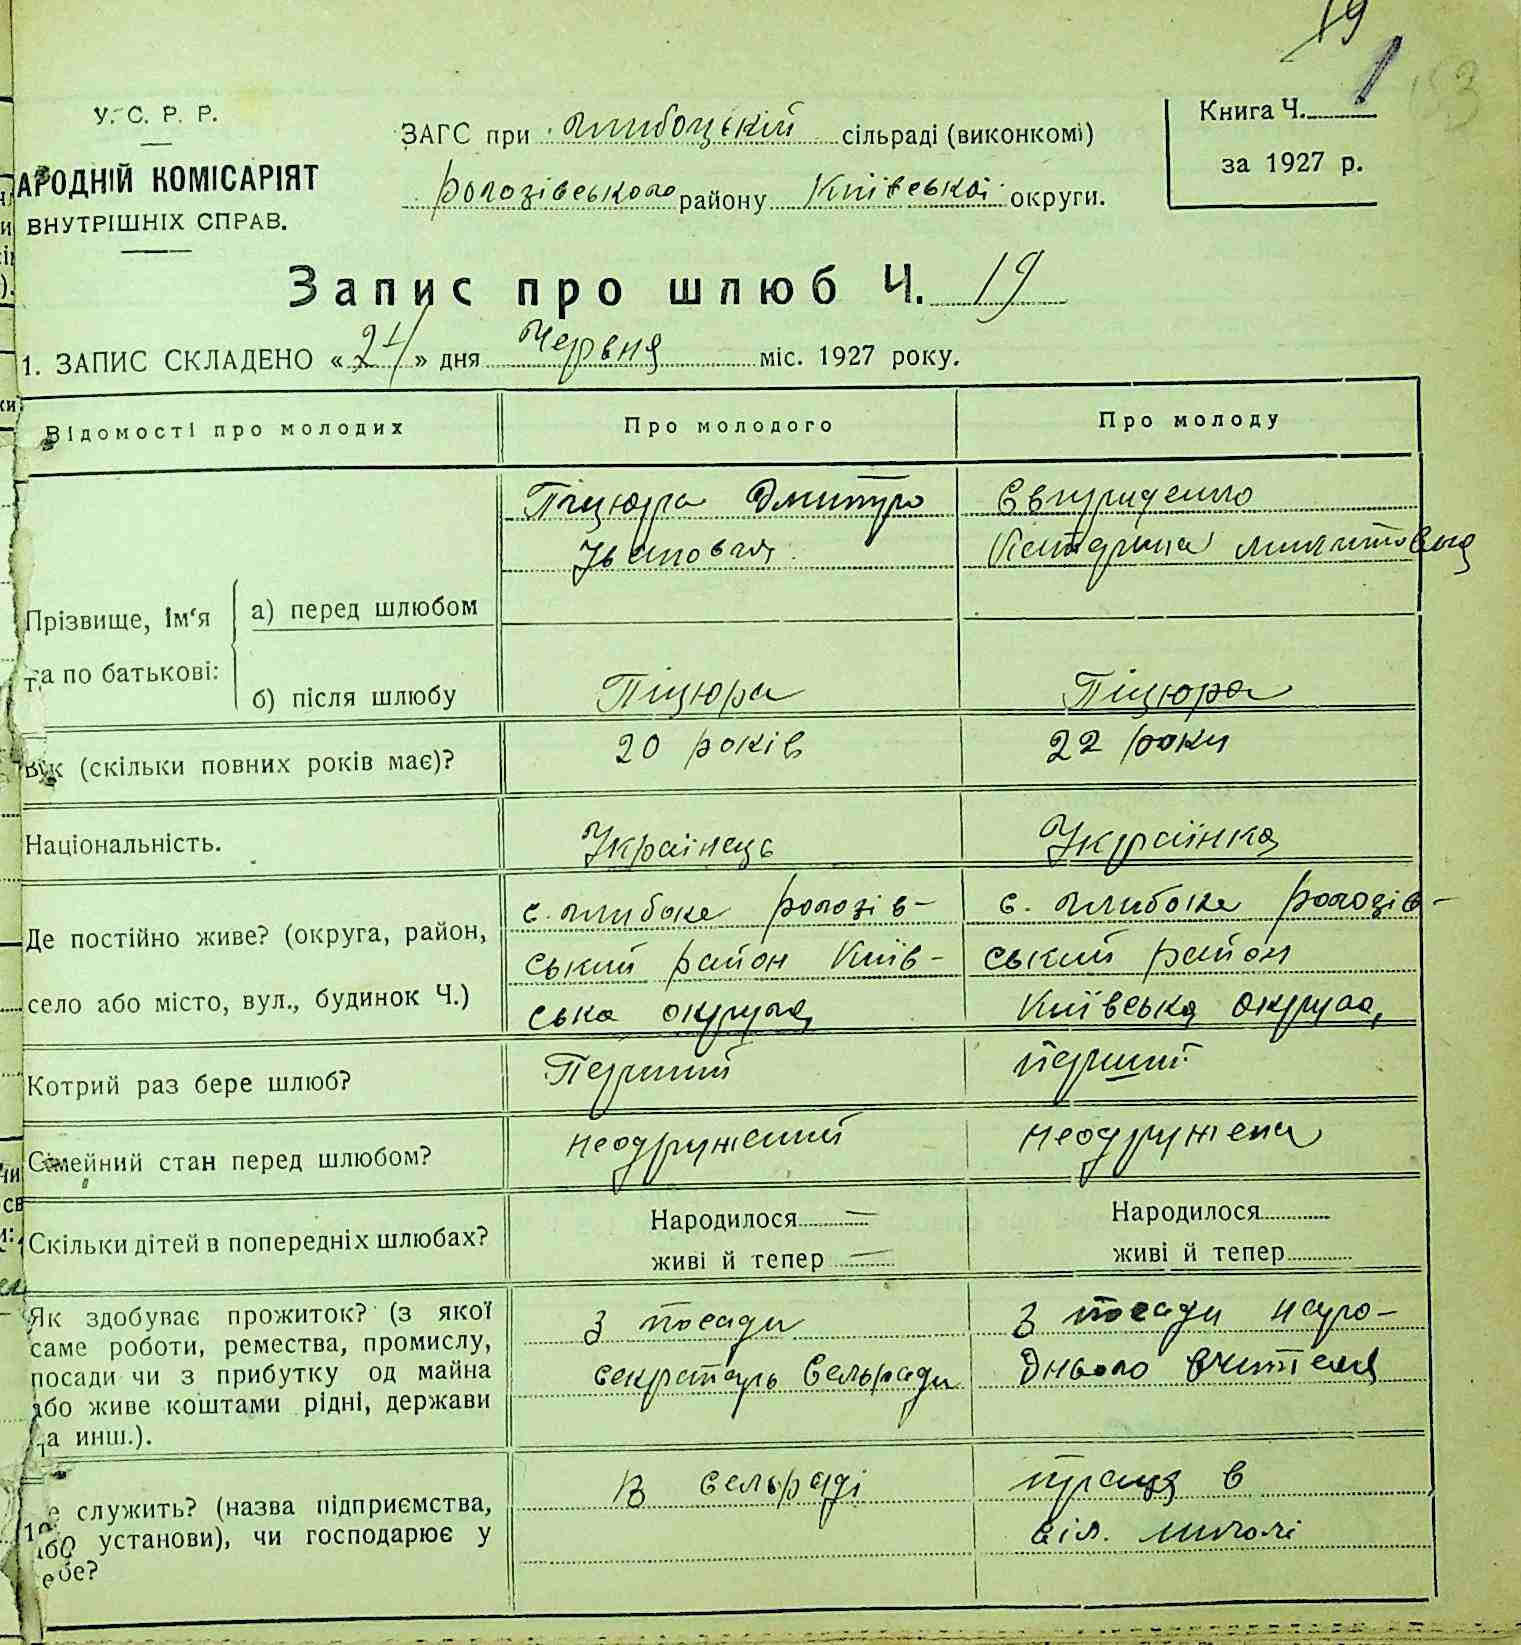 19
1 153
У. С. Р. Р.
АРОДНІЙ КОМІСАРІЯТ
ВНУТРІШНІХ СПРАВ.
ЗАГС при Глибоцькій сільраді (виконкомі)
Рогозівського району Київської округи.
Книга Ч. 1
за 1927 р.
Запис про шлюб Ч. 19
1. ЗАПИС СКЛАДЕНО «21» дня Червня міс. 1927 року.
Відомості про молодих Про молодого Про молоду
Прізвище, Ім'я та по батькові:
а) перед шлюбом
Піцюра Дмитро
Іванович
Катерина
б) після шлюбу Піцюра Піцюра
Вік (скільки повних років має)? 20 років 22 роки
Національність. Українець Українка
Де постійно живе? (округа, район,
село або місто, вул., будинок Ч.)
с. Глибоке Рогозів-
ський район Київ-
ська округа
с. Глибоке Рогозів-
ський район
Київська округа,
Котрий раз бере шлюб? Перший перший
Сімейний стан перед шлюбом? неодружений неодружена
Скільки дітей в попередніх шлюбах?
Народилося —
живі й тепер —
Народилося
живі й тепер
Як здобуває прожиток? (з якої
саме роботи, ремества, промислу,
посади чи з прибутку од майна
або живе коштами рідні, держави
та инш.).
З посади
секретарь сельради
З посади наро-
днього вчителя
е служить? (назва підприємства,
або установи), чи господарює у
ебе?
В сельраді
праця в
сіл. школі